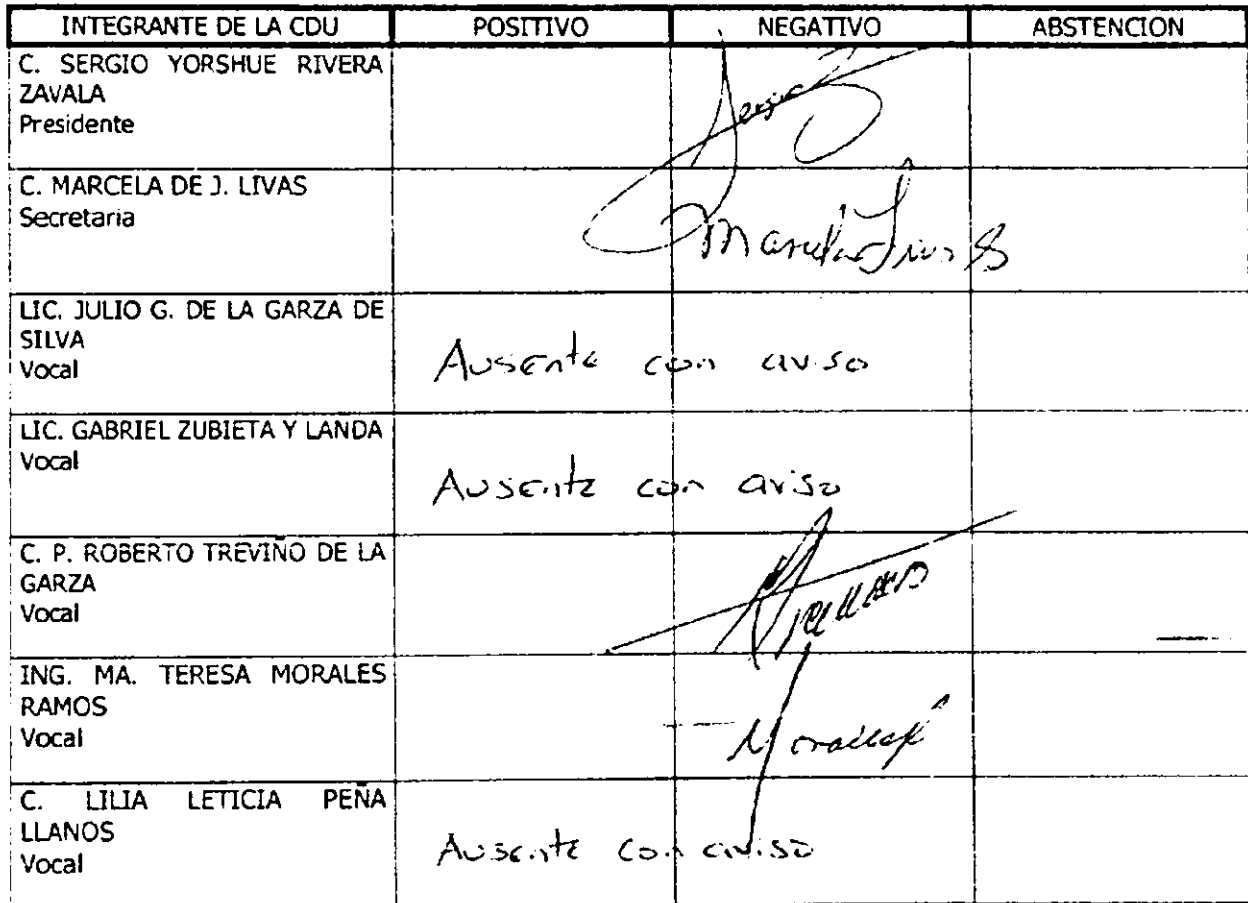 INTEGRANTE DE LA CDU POSITIVO NEGATIVO ABSTENCION
C. SERGIO YORSHUE RIVERA
ZAVALA
Presidente
C. MARCELA DE J. LIVAS
Secretaria
Marcela Livas
LIC. JULIO G. DE LA GARZA DE
SILVA
Vocal
Ausente con aviso
LIC. GABRIEL ZUBIETA Y LANDA
Vocal
Ausente con aviso
C. P. ROBERTO TREVIÑO DE LA
GARZA
Vocal
ING. MA. TERESA MORALES
RAMOS
Vocal
C. LILIA LETICIA PEÑA
LLANOS
Vocal
Ausente con aviso